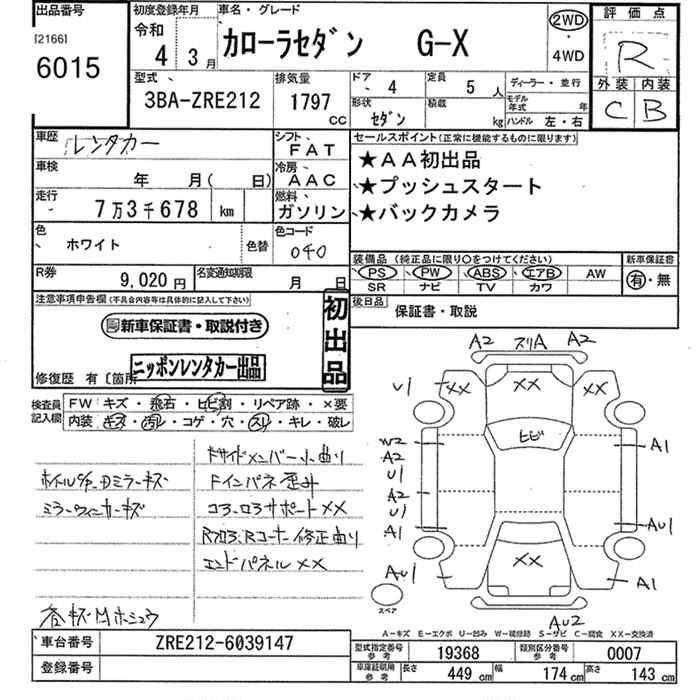 出品番号
[2166]
6015
初度登録年月
令和
4年 3月
車名・グレード
カローラセダン G-X
2WD
・
4WD
評価点
R
外装 内装
C B
型式
3BA-ZRE212
排気量
1797
cc
ドア 4
定員 5人
形状 セダン
積載 kg
ディーラー・並行
モデル年式 年
ハンドル 左・右
車歴
レンタカー
シフト
FAT
車検
年 月( 日)
冷房
AAC
走行
7万3千678 km
燃料
ガソリン
色
ホワイト
色替
色コード
040
R券
9,020円
名変通知期限
月 日
セールスポイント(正常に機能するものに限ります)
★AA初出品
★プッシュスタート
★バックカメラ
装備品(純正品に限り○をつけてください)
PS PW ABS エアB AW
SR ナビ TV カワ
新車保証書
有・無
後日品
保証書・取説
注意事項申告欄(不具合内容等は具体的に記入して下さい)
新車保証書・取説付き
ニッポンレンタカー出品
初出品
修復歴 有〔箇所
検査員記入欄
FW キズ・飛石・ヒビ割・リペア跡・×要
内装 キズ・汚レ・コゲ・穴・スリ・キレ・破レ
ドサイドメンバー小曲り
Fインパネ歪み
コアロアサポートXX
修正曲り
エンドパネルXX
ミラーウィンカーキズ
A2 スリA A2
U1 XX XX XX
ヒビ
W2
A2
U1
A2
U1
A1
AU1
A1
AU1
XX
A1
AU2
スペア
A-キズ E-エクボ U-凹み W-補修跡 S-サビ C-腐食 XX-交換済
車台番号
ZRE212-6039147
登録番号
型式指定番号
参考
19368
類別区分番号
参考
0007
車庫証明用
参考
長さ 449cm
幅 174cm
高さ 143cm